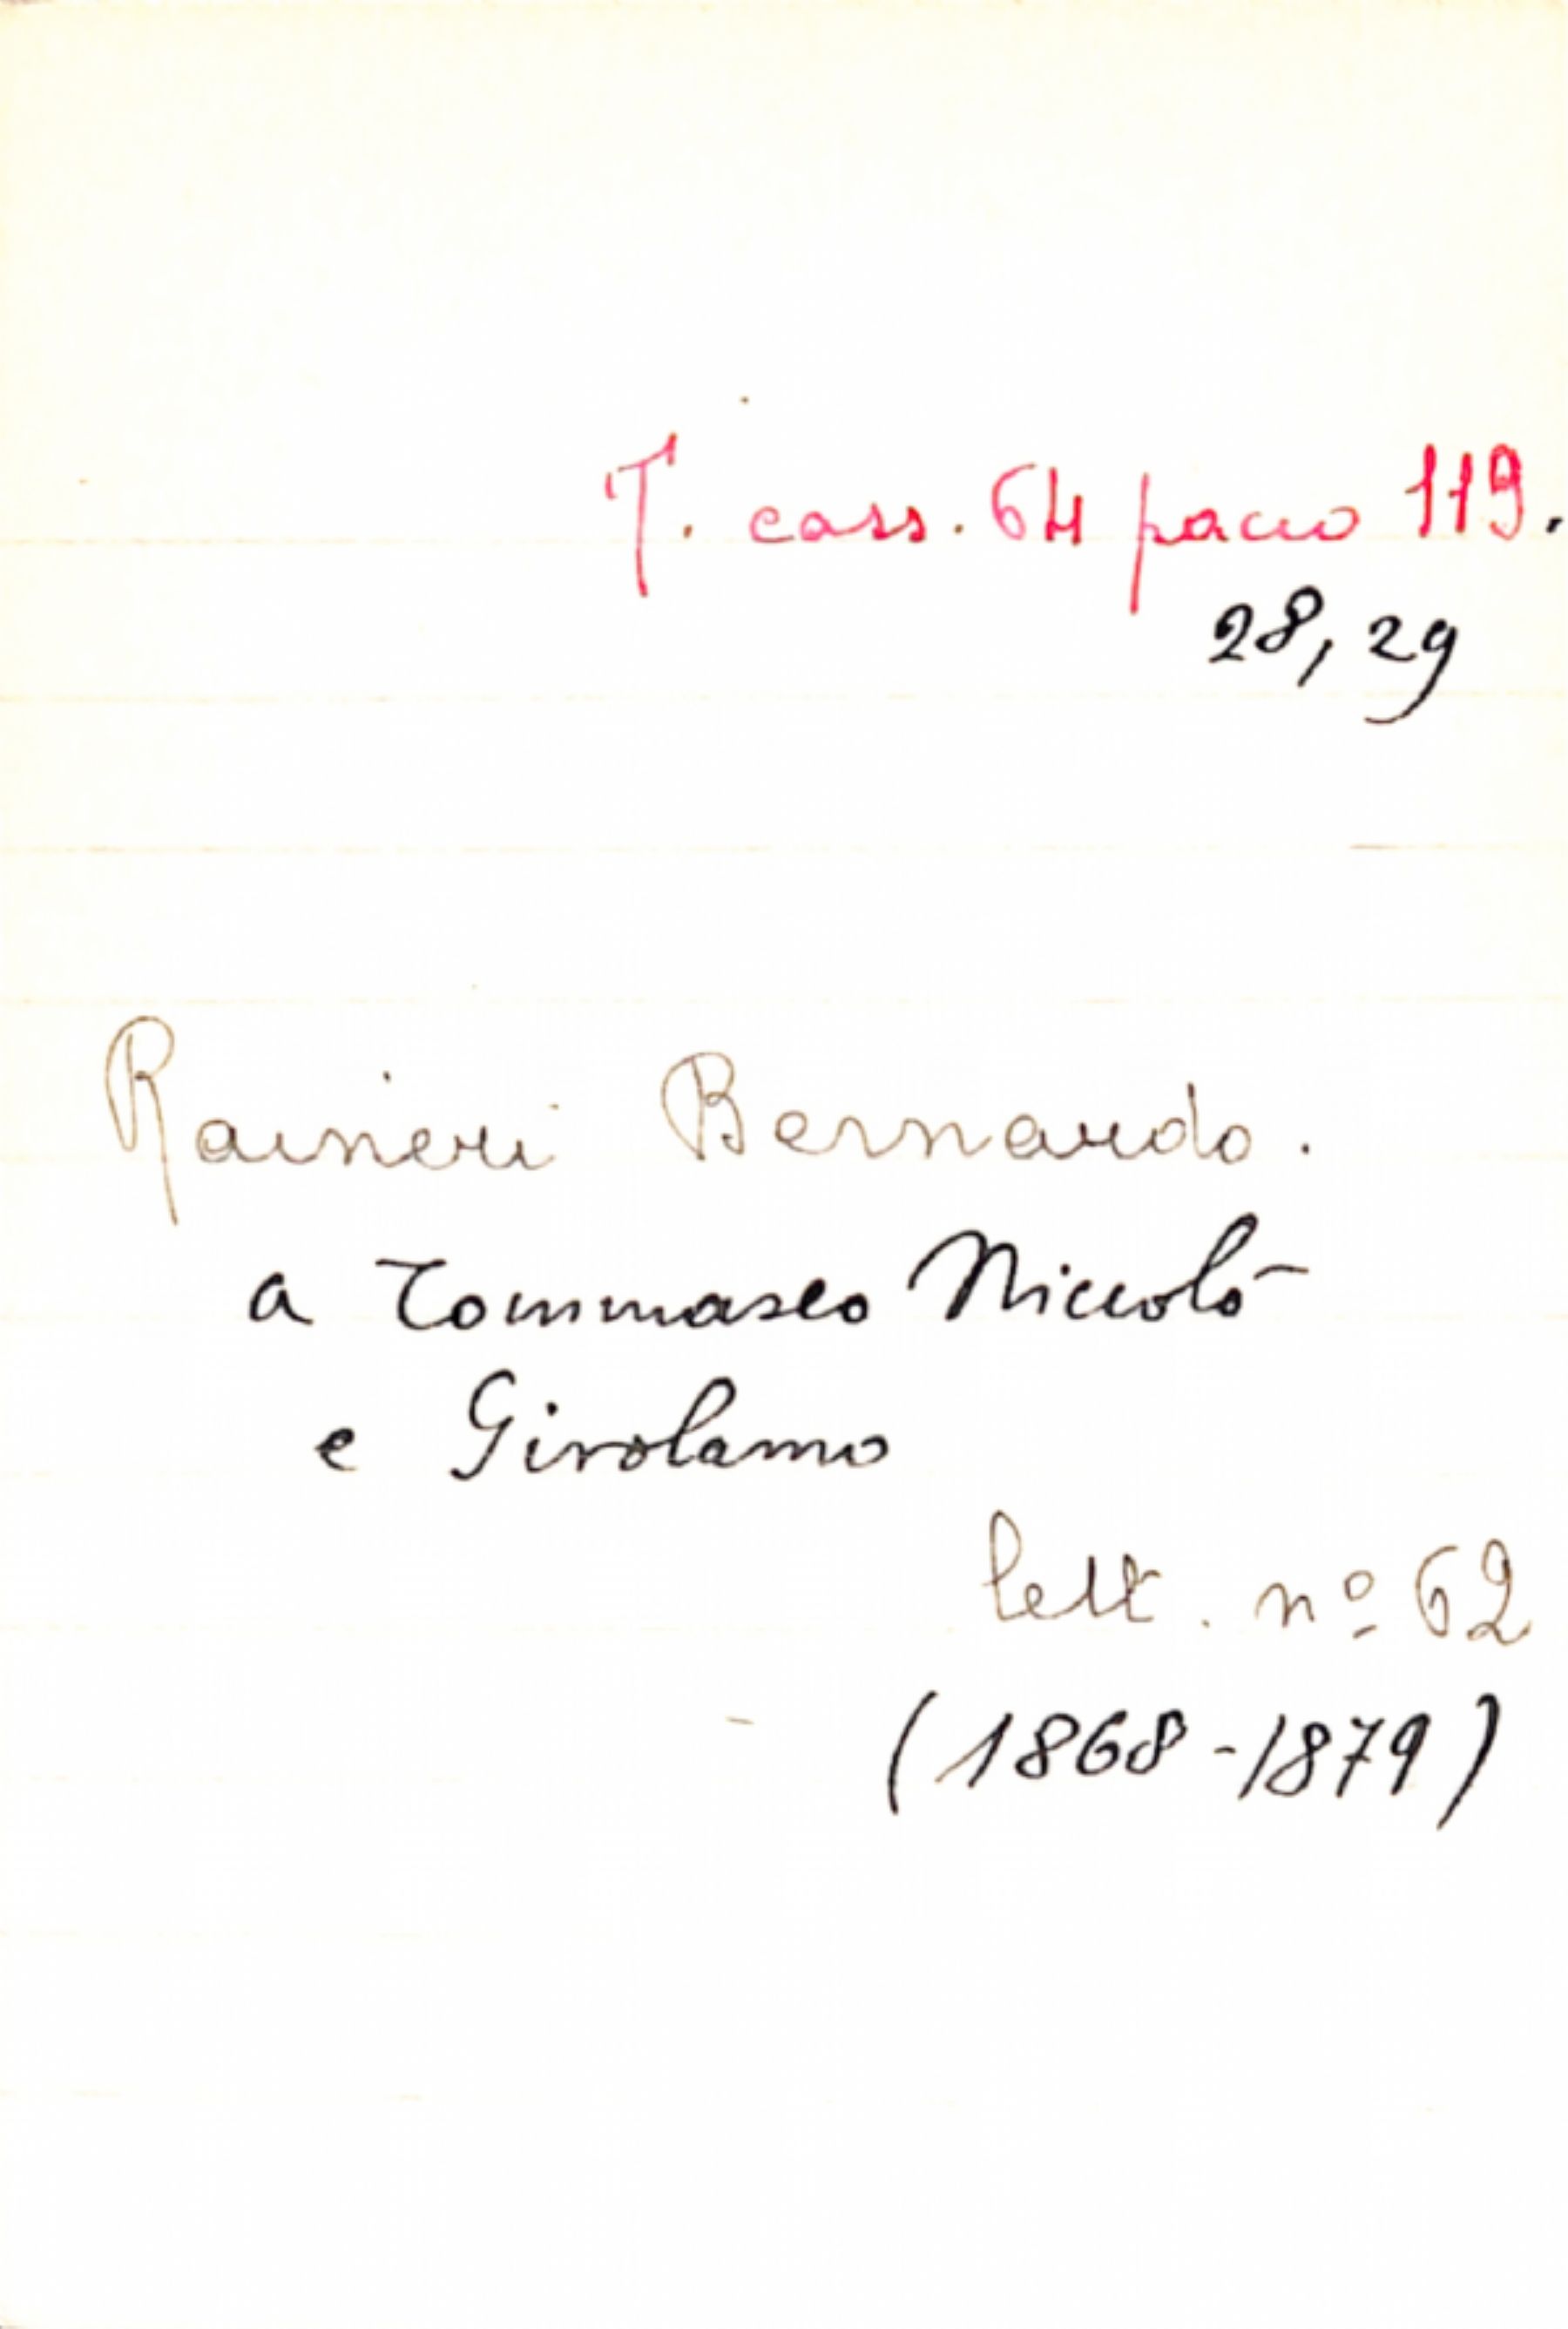 T. cass. 64 pacco 119.
28, 29
Raineri Bernardo.
a Tommaseo Niccolò
e Girolamo
lett. nº 62
(1868-1879)